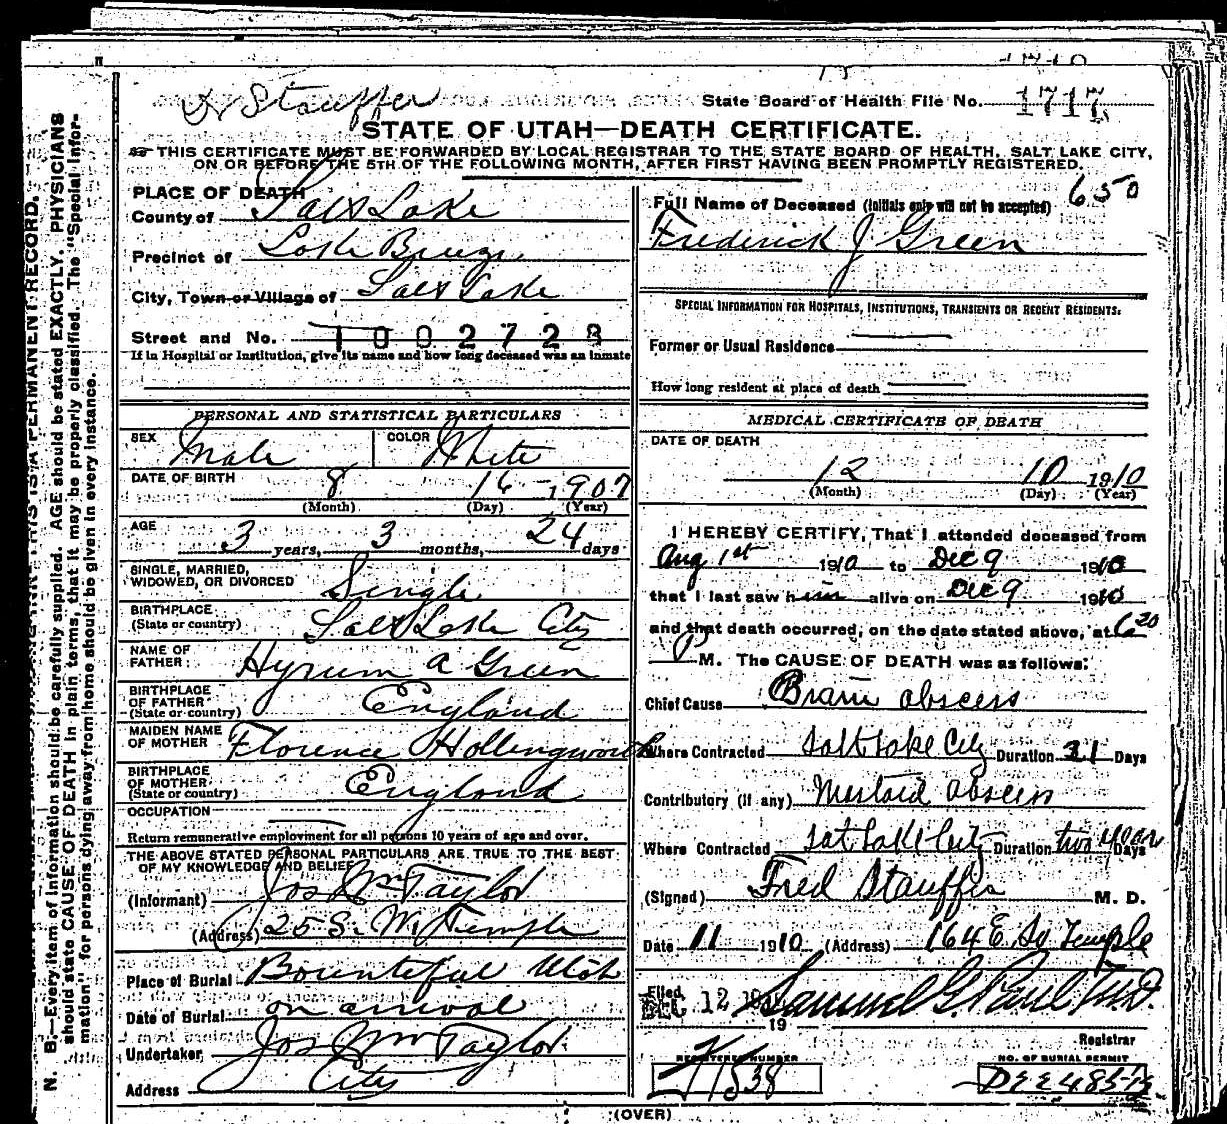 Dr Stauffer
State Board of Health File No. 1717
STATE OF UTAH—DEATH CERTIFICATE.
THIS CERTIFICATE MUST BE FORWARDED BY LOCAL REGISTRAR TO THE STATE BOARD OF HEALTH, SALT LAKE CITY,
ON OR BEFORE THE 5TH OF THE FOLLOWING MONTH, AFTER FIRST HAVING BEEN PROMPTLY REGISTERED.
PLACE OF DEATH
County of Salt Lake
Precinct of Lake Breeze
City, Town or Village of Salt Lake
Street and No. 1002728
If in Hospital or Institution, give its name and how long deceased was an inmate
PERSONAL AND STATISTICAL PARTICULARS
SEX Male COLOR White
DATE OF BIRTH 8 16 1907
(Month) (Day) (Year)
AGE 3 years, 3 months, 24 days
SINGLE, MARRIED,
WIDOWED, OR DIVORCED Single
BIRTHPLACE
(State or country) Salt Lake City
NAME OF
FATHER Hyrum A Green
BIRTHPLACE
OF FATHER
(State or country) England
MAIDEN NAME
OF MOTHER Florence Hollingworth
BIRTHPLACE
OF MOTHER
(State or country) England
OCCUPATION
Return remunerative employment for all persons 10 years of age and over.
THE ABOVE STATED PERSONAL PARTICULARS ARE TRUE TO THE BEST
OF MY KNOWLEDGE AND BELIEF
(Informant) Jos Wm Taylor
(Address) 25 S. W. Temple
Place of Burial Bountiful Utah
Date of Burial on arrival
Undertaker Jos Wm Taylor
Address City
650
Full Name of Deceased (Initials only will not be accepted)
Frederick J Green
SPECIAL INFORMATION FOR HOSPITALS, INSTITUTIONS, TRANSIENTS OR RECENT RESIDENTS:
Former or Usual Residence
How long resident at place of death
MEDICAL CERTIFICATE OF DEATH
DATE OF DEATH
12 10 1910
(Month) (Day) (Year)
I HEREBY CERTIFY, That I attended deceased from
Aug 1st 1910 to Dec 9 1910
that I last saw him alive on Dec 9 1910
and that death occurred, on the date stated above, at 6 20
P M. The CAUSE OF DEATH was as follows:
Chief Cause Brain abscess
Where Contracted Salt Lake City Duration 21 Days
Contributory (if any) Mastoid abscess
Where Contracted Salt Lake City Duration two years Days
(Signed) Fred Stauffer M. D.
Date 11 1910 (Address) 164 E. So Temple
Filed DEC 12 1910 Samuel G. Paul M.D.
19
Registrar
REGISTERED NUMBER
NO. OF BURIAL PERMIT
(OVER)
N. B.—Every item of information should be carefully supplied. AGE should be stated EXACTLY. PHYSICIANS
should state CAUSE OF DEATH in plain terms, that it may be properly classified. The "Special Infor-
mation" for persons dying away from home should be given in every instance.